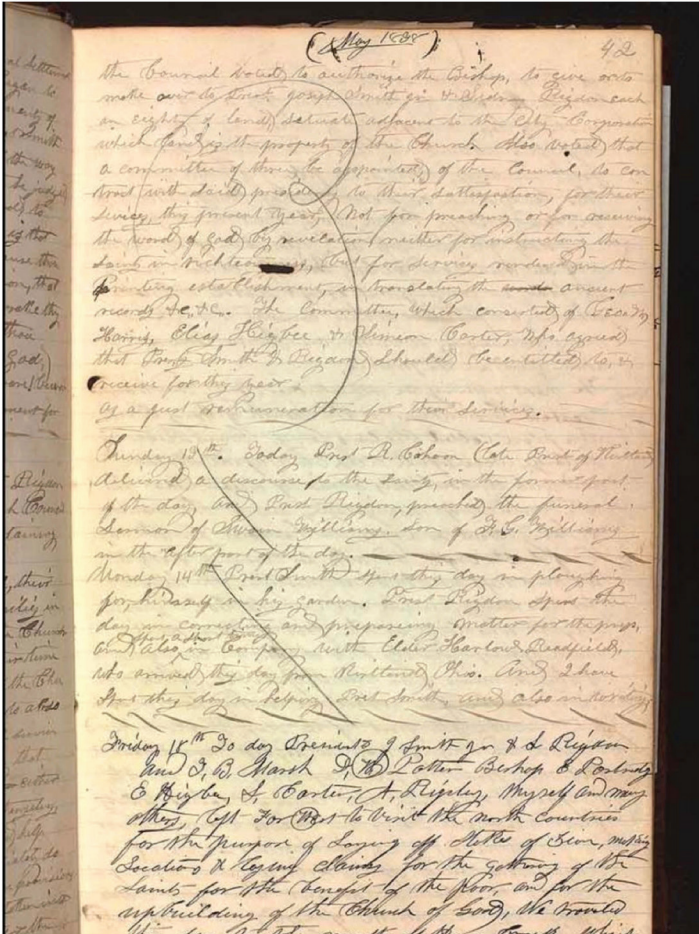 (May 1838)
42
the Council voted to authorize the Bishop, to give or to
make over to Prests Joseph Smith jr. & Sidney Rigdon each
an eighty of land, situate adjacent to the City Corporation
which land is the property of the Church. Also voted that
a committee of three be appointed, of the Council, to con
tract with said presidency to their satisfaction, for their
services, this present year, Not for preaching or for receiving
the word of God by revelation, neither for instructing the
Saints in righteousness, but for services rendered in the
Printing establishment, in translating the ancient
records &c, &c. The Committee, which consisted of Geo. W.
Harris, Elias Higbee & Simeon Carter, who agreed
that Prests Smith & Rigdon, should be entitled to, &
receive for this year
as a just remuneration for their services.
Sunday 13th. Today Prest R. Cahoon (late Prest of Kirtland)
delivered a discourse to the Saints, in the former part
of the day, and Prest Rigdon, preached the funeral
Sermon of Swain Williams, son of F. G. Williams
in the after part of the day.
Monday 14th Prest Smith spent this day in ploughing
for himself in his garden. Prest Rigdon spent the
day in correcting and prepareing matter for the press,
and also spent a short time in Company with Elder Harlow Readfield,
who arrived this day from Kirtland Ohio. And I have
spent this day in helping Prest Smith, and also in writing
Friday 18th To day Presidents J Smith jr & S Rigdon
and T, B, Marsh D, W, Patten Bishop E Partridge
E Higbee, S, Carter, A, Ripley, Myself and many
others, left Far West to visit the north countries
for the purpose of Laying off stakes of Zion, making
Locations & laying claims for the gathering of the
Saints for the benefit of the poor, and for the
upbuilding of the Church of God, We traveled